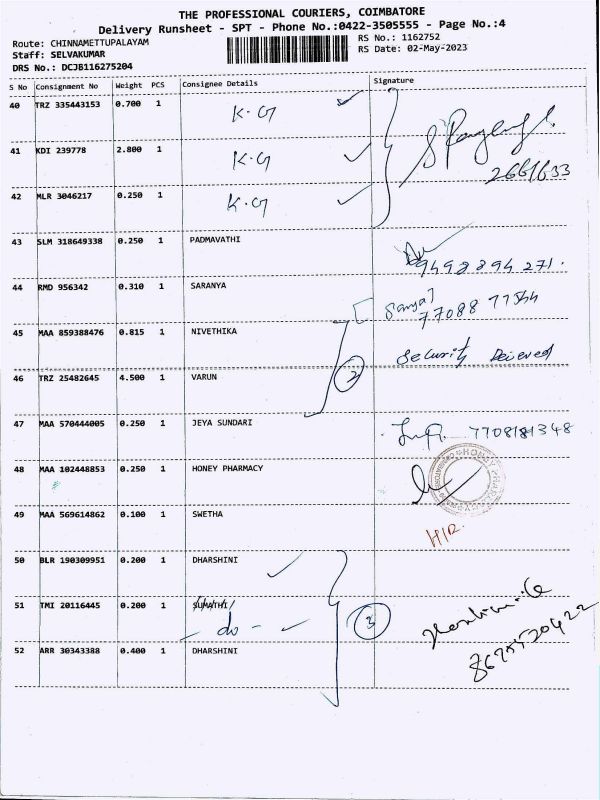 THE PROFESSIONAL COURIERS, COIMBATORE
Delivery Runsheet - SPT - Phone No.:0422-3505555 - Page No.:4
Route: CHINNAMETTUPALAYAM
RS No.: 1162752
Staff: SELVAKUMAR
RS Date: 02-May-2023
DRS No.: DCJB116275204
S No Consignment No Weight PCS Consignee Details Signature
40 TRZ 335443153 0.700 1 K.G
41 KDI 239778 2.800 1 K.G
2661633
42 MLR 3046217 0.250 1 K.G
43 SLM 318649338 0.250 1 PADMAVATHI
9498894271.
44 RMD 956342 0.310 1 SARANYA
77088 77544
45 MAA 859388476 0.815 1 NIVETHIKA
Security Deieved
46 TRZ 25482645 4.500 1 VARUN 2
47 MAA 570444005 0.250 1 JEYA SUNDARI 7708181348
48 MAA 102448853 0.250 1 HONEY PHARMACY
HONEY PHARMACY
49 MAA 569614862 0.100 1 SWETHA
H/R.
50 BLR 190309951 0.200 1 DHARSHINI
51 TMI 20116445 0.200 1 SUMATHI/
- do - 3
52 ARR 30343388 0.400 1 DHARSHINI